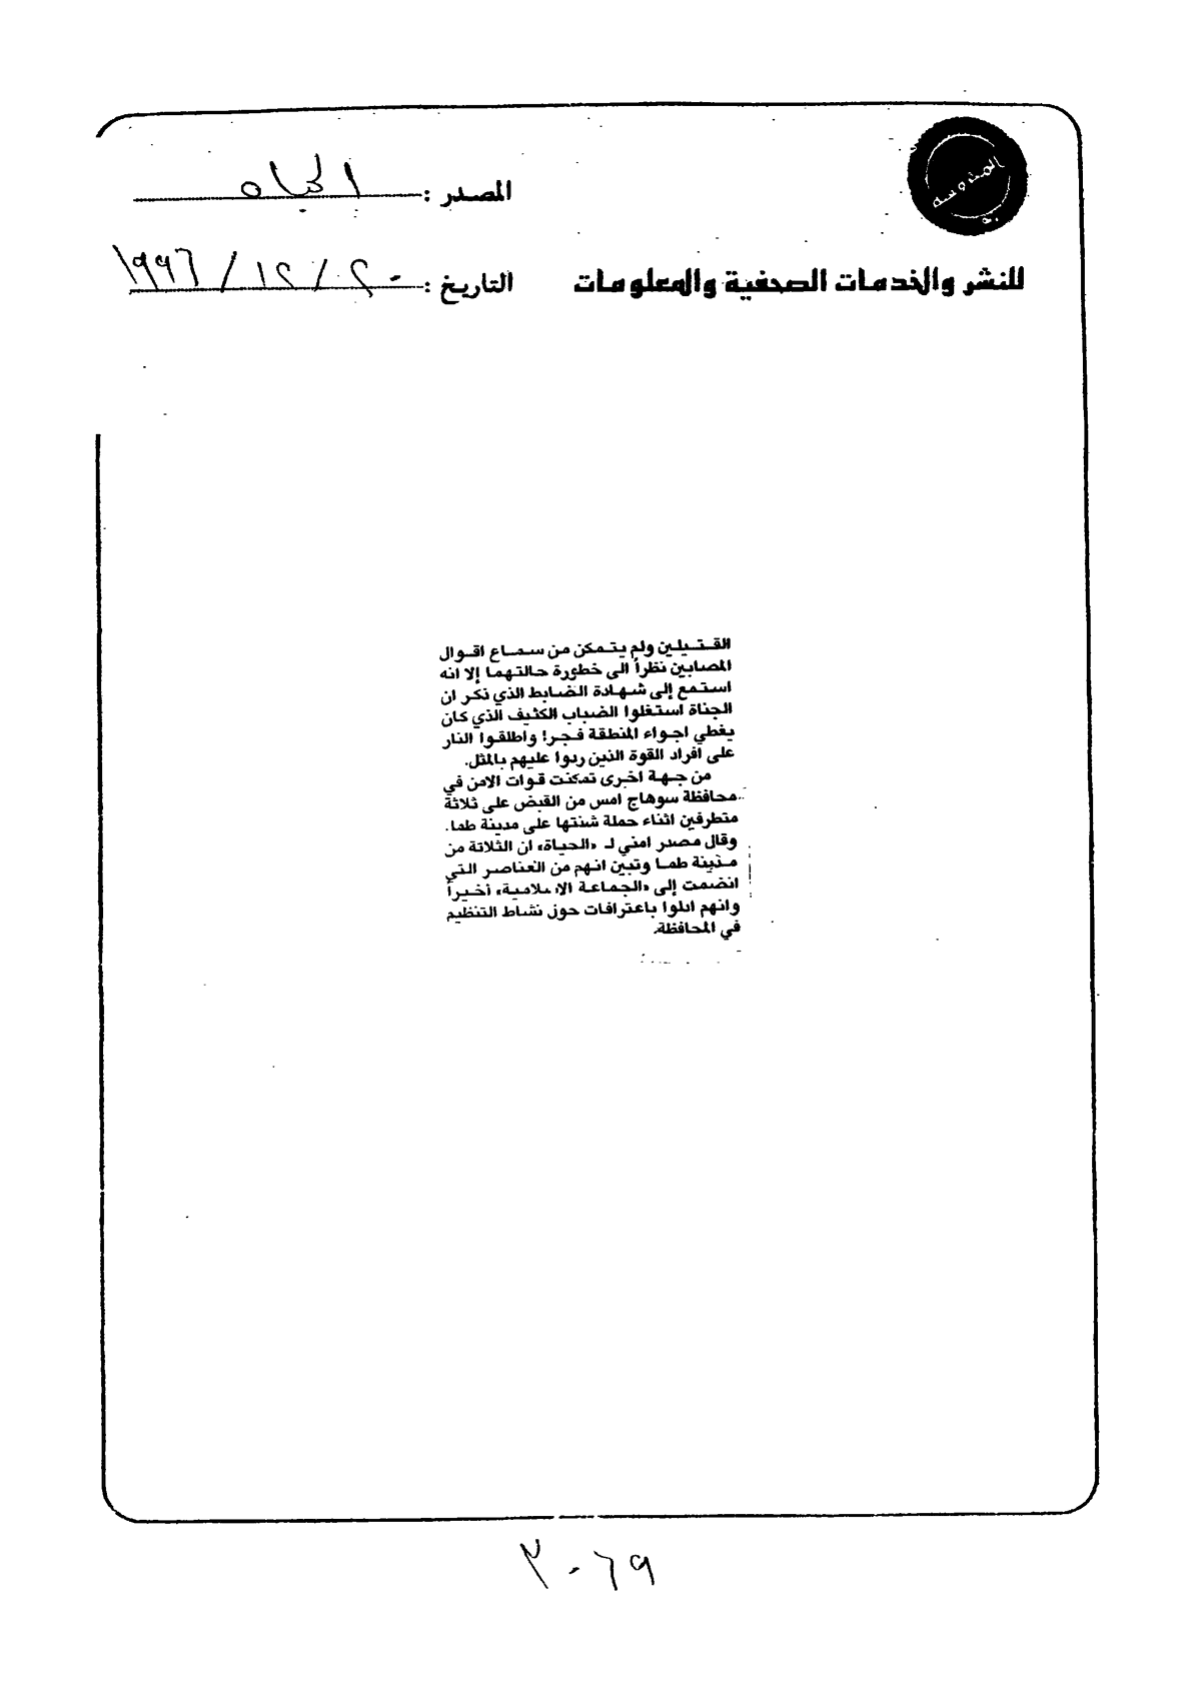 المصدر : الحياه
للنشر والخدمات الصحفية والمعلومات
التاريخ : ٢٠ / ١٢ / ١٩٩٦
القتيلين ولم يتمكن من سماع اقوال
المصابين نظراً الى خطورة حالتهما إلا انه
استمع إلى شهادة الضابط الذي ذكر ان
الجناة استغلوا الضباب الكثيف الذي كان
يغطي اجواء المنطقة فجراً واطلقوا النار
على افراد القوة الذين ردوا عليهم بالمثل.
من جهة اخرى تمكنت قوات الامن في
محافظة سوهاج امس من القبض على ثلاثة
متطرفين اثناء حملة شنتها على مدينة طما.
وقال مصدر امني لـ «الحياة» ان الثلاثة من
مدينة طما وتبين انهم من العناصر التي
انضمت إلى «الجماعة الإسلامية» أخيراً
وانهم ادلوا باعترافات حول نشاط التنظيم
في المحافظة.
٣٠٦٩